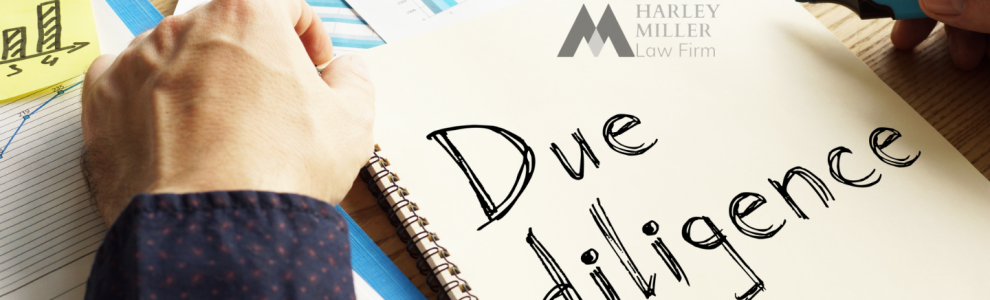 HARLEY
MILLER
Law Firm
Due
diligence
3 4